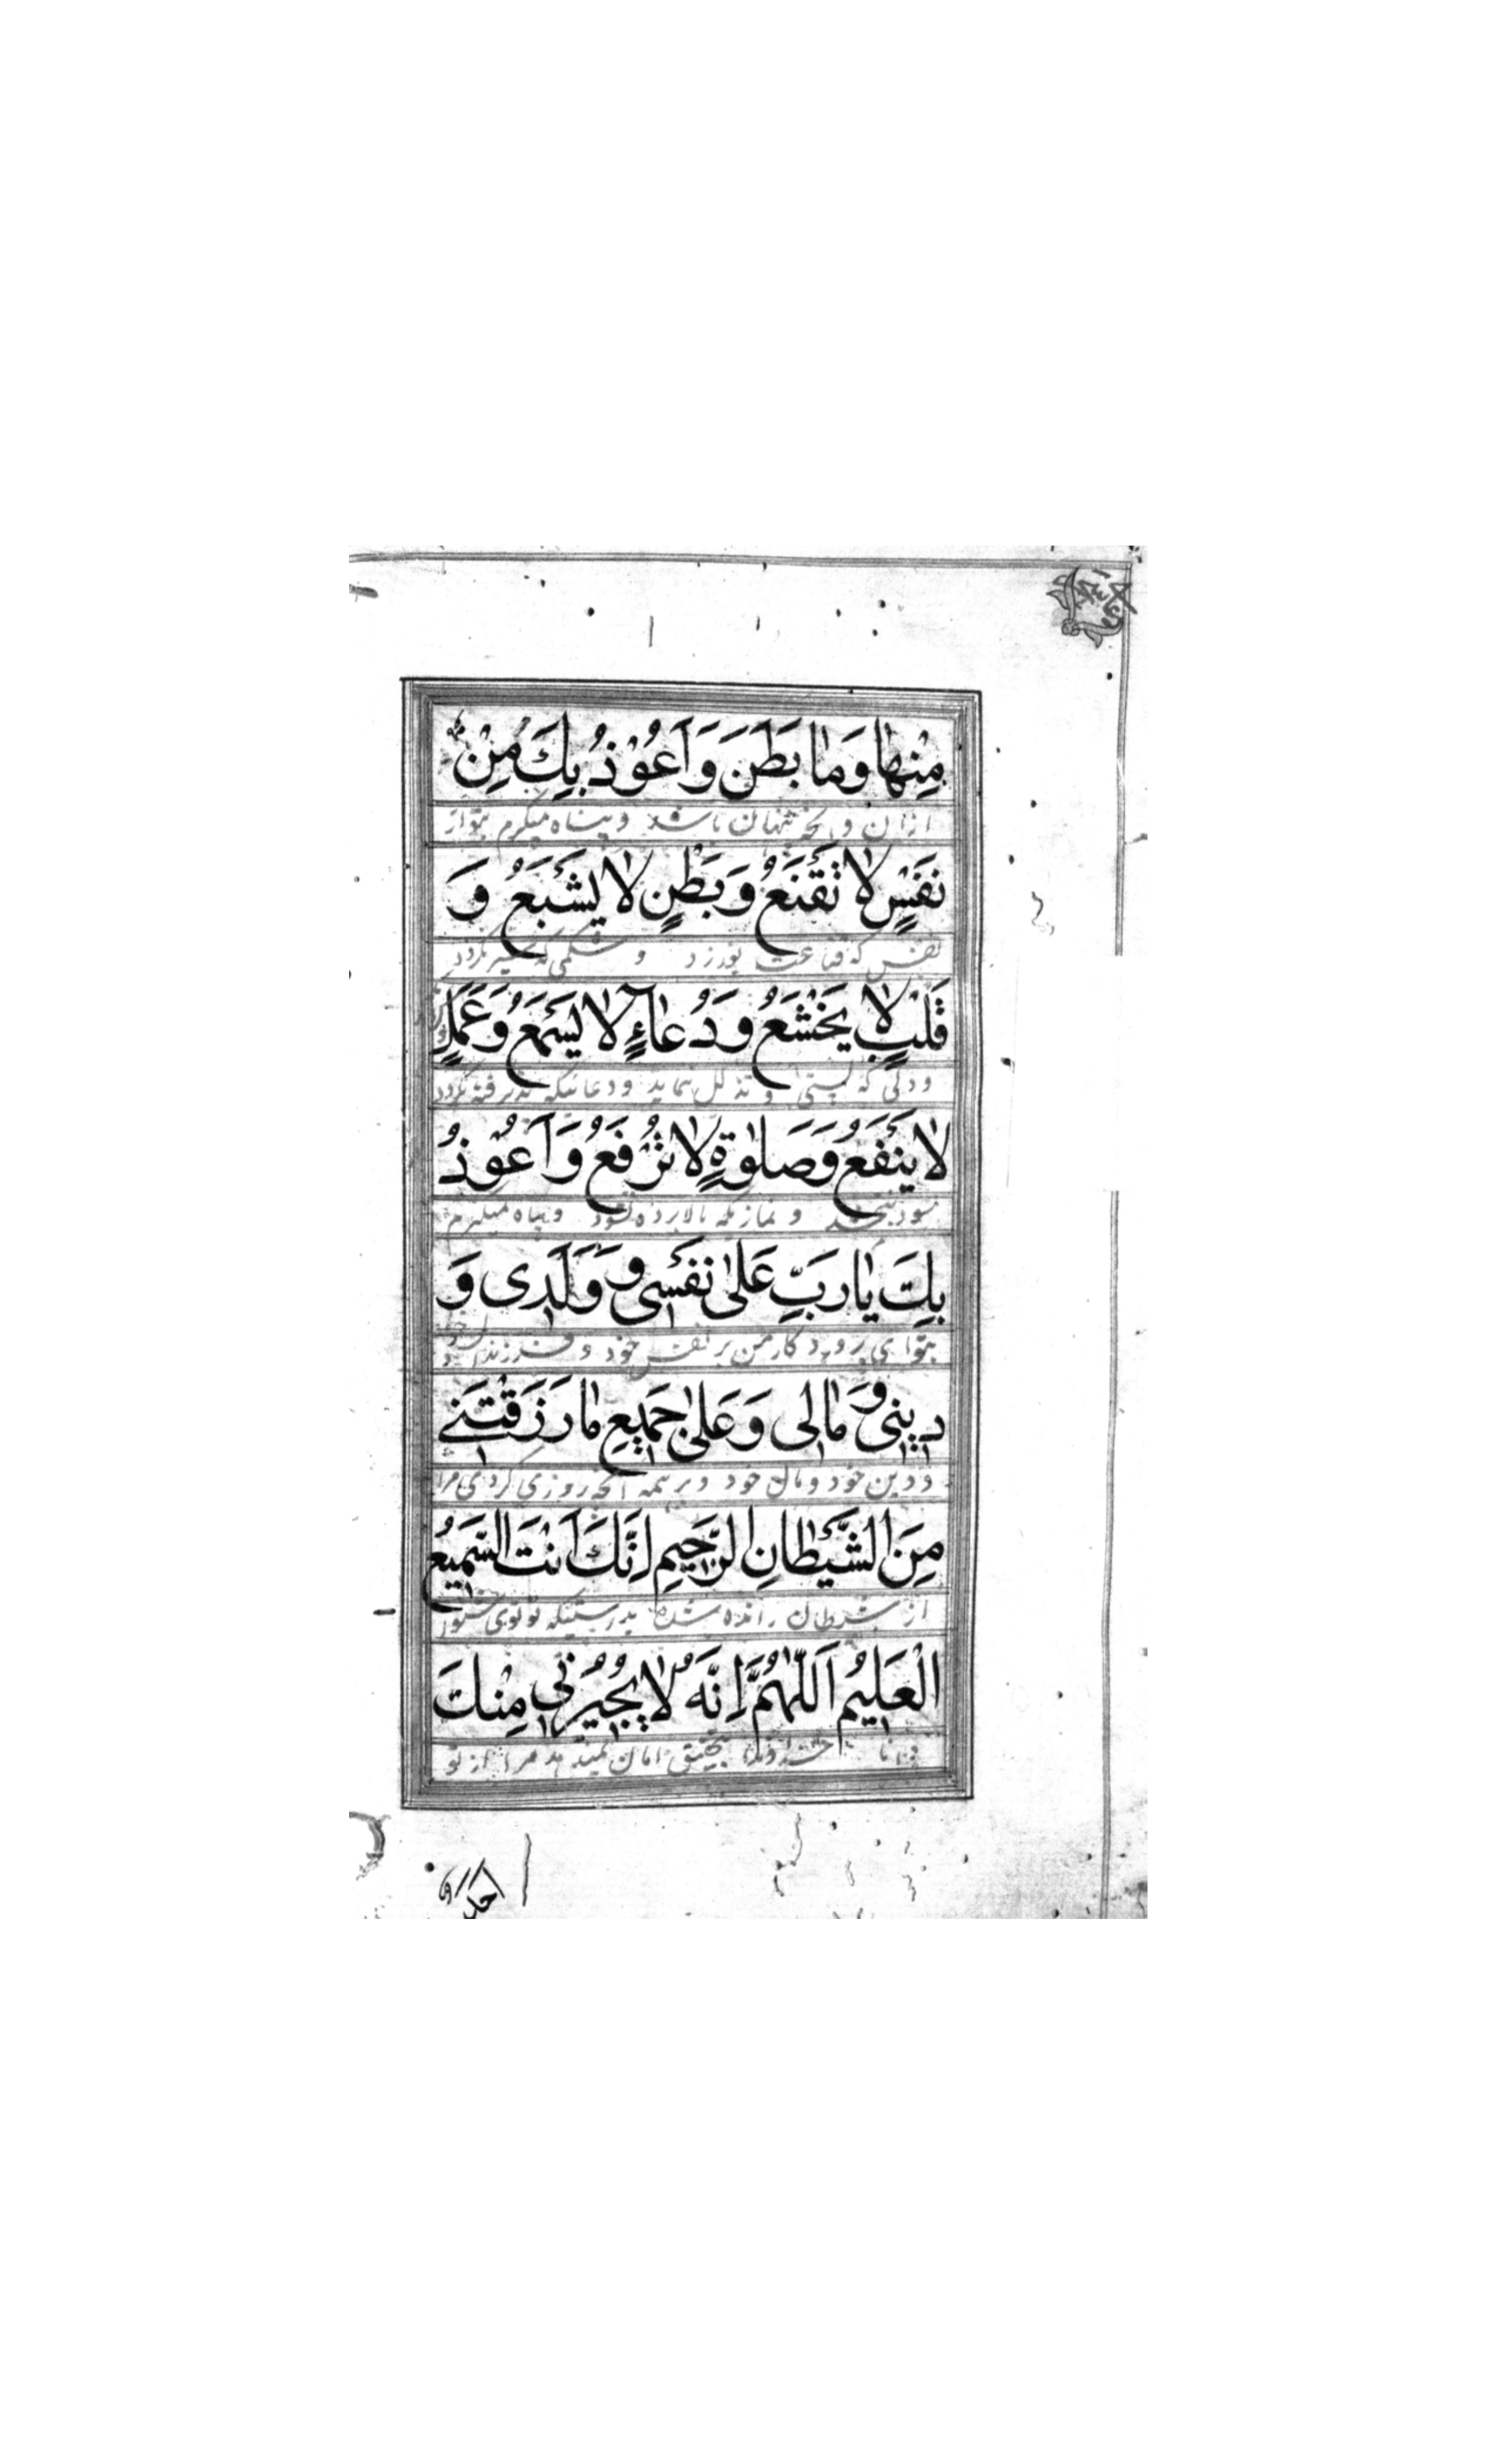 مِنْهٰا وَمٰا بَطَنَ وَاَعُوْذُ بِكَ مِنْ
ازان و آنچه پنهان باشد و پناه میگیرم بتو از
نَفْسٍ لٰا تَقْنَعُ وَبَطْنٍ لٰا يَشْبَعُ وَ
نفس که قناعت نورزد و شکمی که سیر نگردد
قَلْبٍ لٰا يَخْشَعُ وَدُعٰاۤءٍ لٰا يُسْمَعُ وَعَمَلٍ
ودلی که پستی و تذلل ننماید و دعائیکه پذیرفته نگردد
لٰا يَنْفَعُ وَصَلٰوةٍ لٰا تُرْفَعُ وَاَعُوْذُ
سود نبخشد و نمازیکه بالا برده نشود و پناه میگیرم
بِكَ يٰا رَبِّ عَلٰى نَفْسٖى وَ وَلَدٖى وَ
بتو ای پروردگار من بر نفس خود و فرزندان خود
دٖينٖى وَ مٰالٖى وَعَلٰى جَمٖيعِ مٰا رَزَقْتَنٖے
ودین خود و مال خود و بر همه آنچه روزی کردی مرا
مِنَ الشَّيْطٰانِ الرَّجٖيمِ اِنَّكَ اَنْتَ السَّمٖيعُ
از شیطان رانده شده بدرستیکه تو توی شنوا
الْعَلٖيمُ اَللّٰهُمَّ اِنَّهُ لٰا يُجٖيرُنٖى مِنْكَ
دانا خداوندا بتحقیق امان نمیدهد مرا از تو